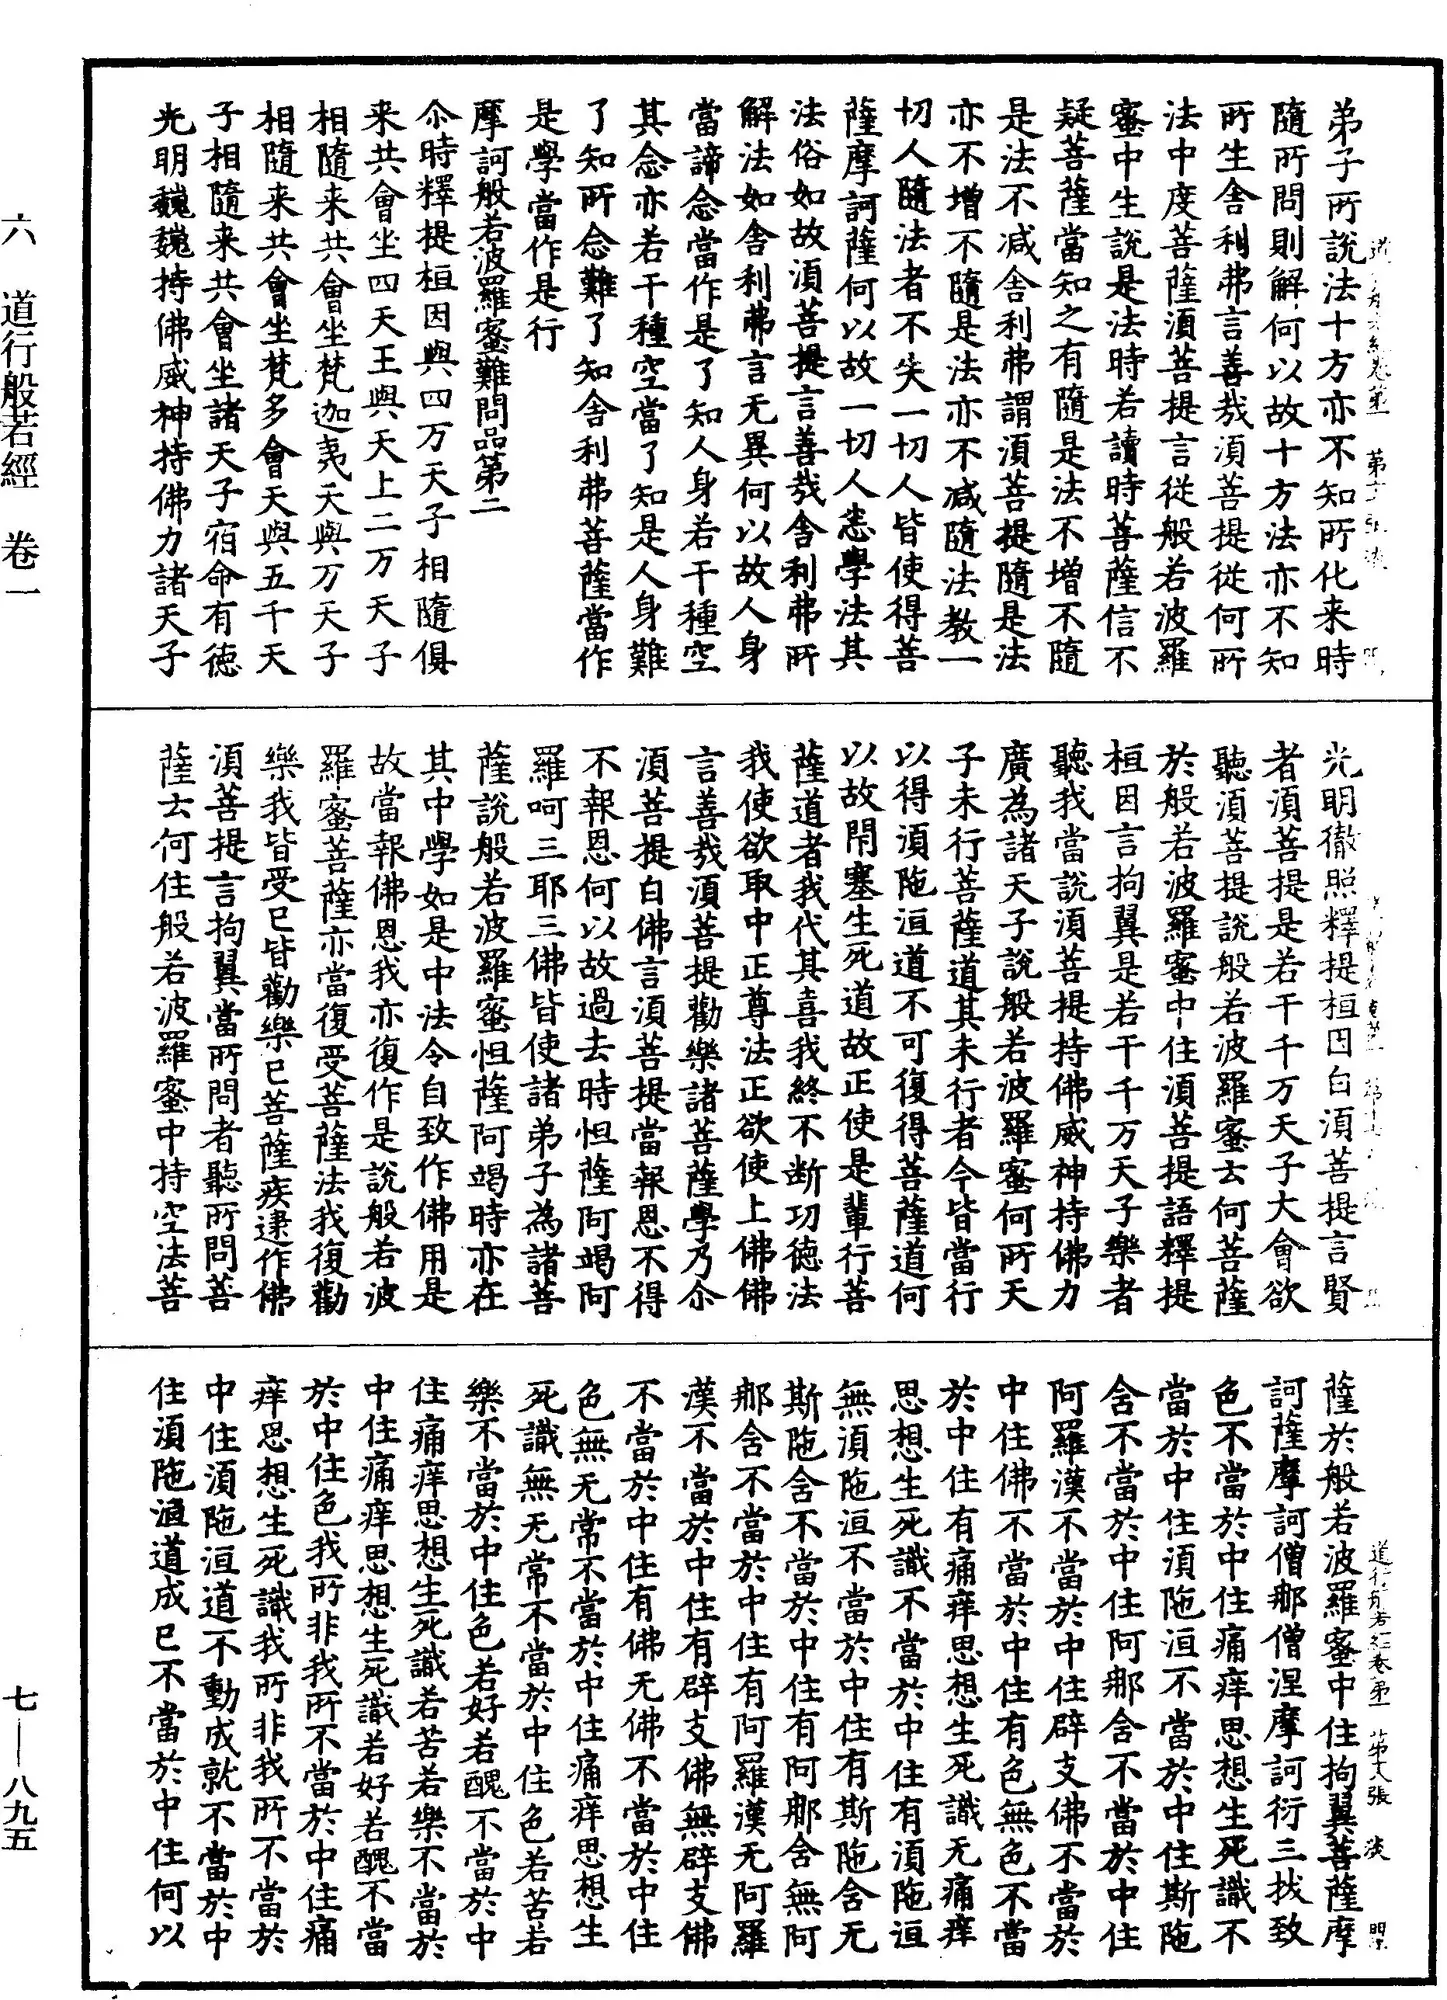 弟子所說法十方亦不知所化来時
隨所問則解何以故十方法亦不知
所生舍利弗言善哉須菩提從何所
法中度菩薩須菩提言從般若波羅
蜜中生說是法時若讀時菩薩信不
疑菩薩當知之有隨是法不增不隨
是法不减舍利弗謂須菩提隨是法
亦不增不隨是法亦不减隨法教一
切人隨法者不失一切人皆使得菩
薩摩訶薩何以故一切人悉學法其
法俗如故須菩提言善哉舍利弗所
解法如舍利弗言无異何以故人身
當諦念當作是了知人身若干種空
其念亦若干種空當了知是人身難
了知所念難了知舍利弗菩薩當作
是學當作是行
摩訶般若波羅蜜難問品第二
尒時釋提桓因與四万天子相隨俱
来共會坐四天王與天上二万天子
相隨来共會坐梵迦夷天與万天子
相隨来共會坐梵多會天與五千天
子相隨来共會坐諸天子宿命有德
光明巍巍持佛威神持佛力諸天子
光明徹照釋提桓因白須菩提言賢
者須菩提是若干千万天子大會欲
聽須菩提說般若波羅蜜云何菩薩
於般若波羅蜜中住須菩提語釋提
桓因言拘翼是若干千万天子樂者
聽我當說須菩提持佛威神持佛力
廣為諸天子說般若波羅蜜何所天
子未行菩薩道其未行者今皆當行
以得須陁洹道不可復得菩薩道何
以故閇塞生死道故正使是輩行菩
薩道者我代其喜我終不断功德法
我使欲取中正尊法正欲使上佛佛
言善哉須菩提勸樂諸菩薩學乃尒
須菩提白佛言須菩提當報恩不得
不報恩何以故過去時怛薩阿竭阿
羅呵三耶三佛皆使諸弟子為諸菩
薩說般若波羅蜜怛薩阿竭時亦在
其中學如是中法令自致作佛用是
故當報佛恩我亦復作是說般若波
羅蜜菩薩亦當復受菩薩法我復勸
樂我皆受已皆勸樂已菩薩疾逮作佛
須菩提言拘翼當所問者聽所問菩
薩云何住般若波羅蜜中持空法菩
道行般若經卷第一 第八張 淡
薩於般若波羅蜜中住拘翼菩薩摩
訶薩摩訶僧那僧涅摩訶衍三拔致
色不當於中住痛痒思想生死識不
當於中住須陁洹不當於中住斯陁
含不當於中住阿那含不當於中住
阿羅漢不當於中住辟支佛不當於
中住佛不當於中住有色無色不當
於中住有痛痒思想生死識无痛痒
思想生死識不當於中住有須陁洹
無須陁洹不當於中住有斯陁含无
斯陁含不當於中住有阿那含無阿
那含不當於中住有阿羅漢无阿羅
漢不當於中住有辟支佛無辟支佛
不當於中住有佛无佛不當於中住
色無无常不當於中住痛痒思想生
死識無无常不當於中住色若苦若
樂不當於中住色若好若醜不當於中
住痛痒思想生死識若苦若樂不當於
中住痛痒思想生死識若好若醜不當
於中住色我所非我所不當於中住痛
痒思想生死識我所非我所不當於
中住須陁洹道不動成就不當於中
住須陁洹道成已不當於中住何以
六 道行般若經 卷一
七—八九五